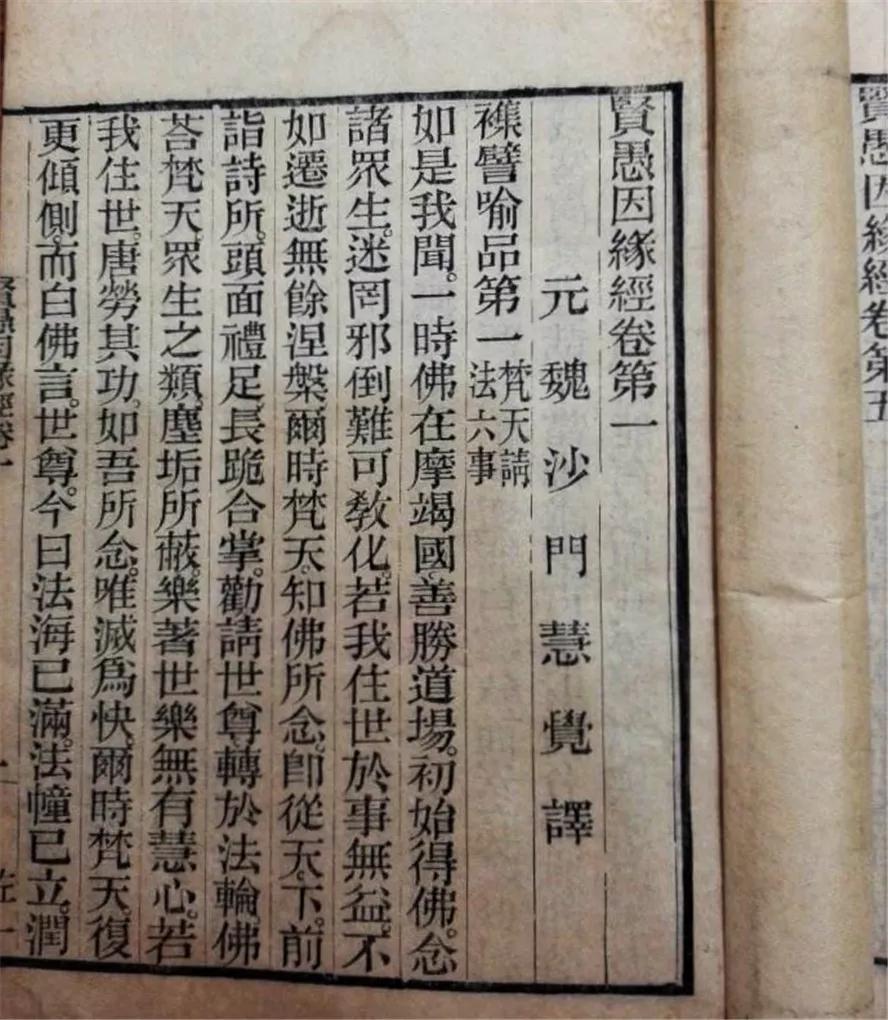 賢愚因緣經卷第五
賢愚因緣經卷第一
元魏沙門慧覺譯
襍譬喻品第一
梵天請
法六事
如是我聞。一時佛在摩竭國。善勝道場。初始得佛。念
諸眾生。迷罔邪倒難可教化。若我住世於事無益。不
如遷逝無餘涅槃爾時梵天。知佛所念。卽從天下。前
詣詩所。頭面禮足。長跪合掌。勸請世尊轉於法輪。佛
荅梵天。眾生之類。塵垢所蔽。樂著世樂無有慧心。若
我住世。唐勞其功。如吾所念。唯滅為快。爾時梵天。復
更傾側。而白佛言。世尊。今日法海已滿。法幢已立。潤
賢愚因緣經卷一